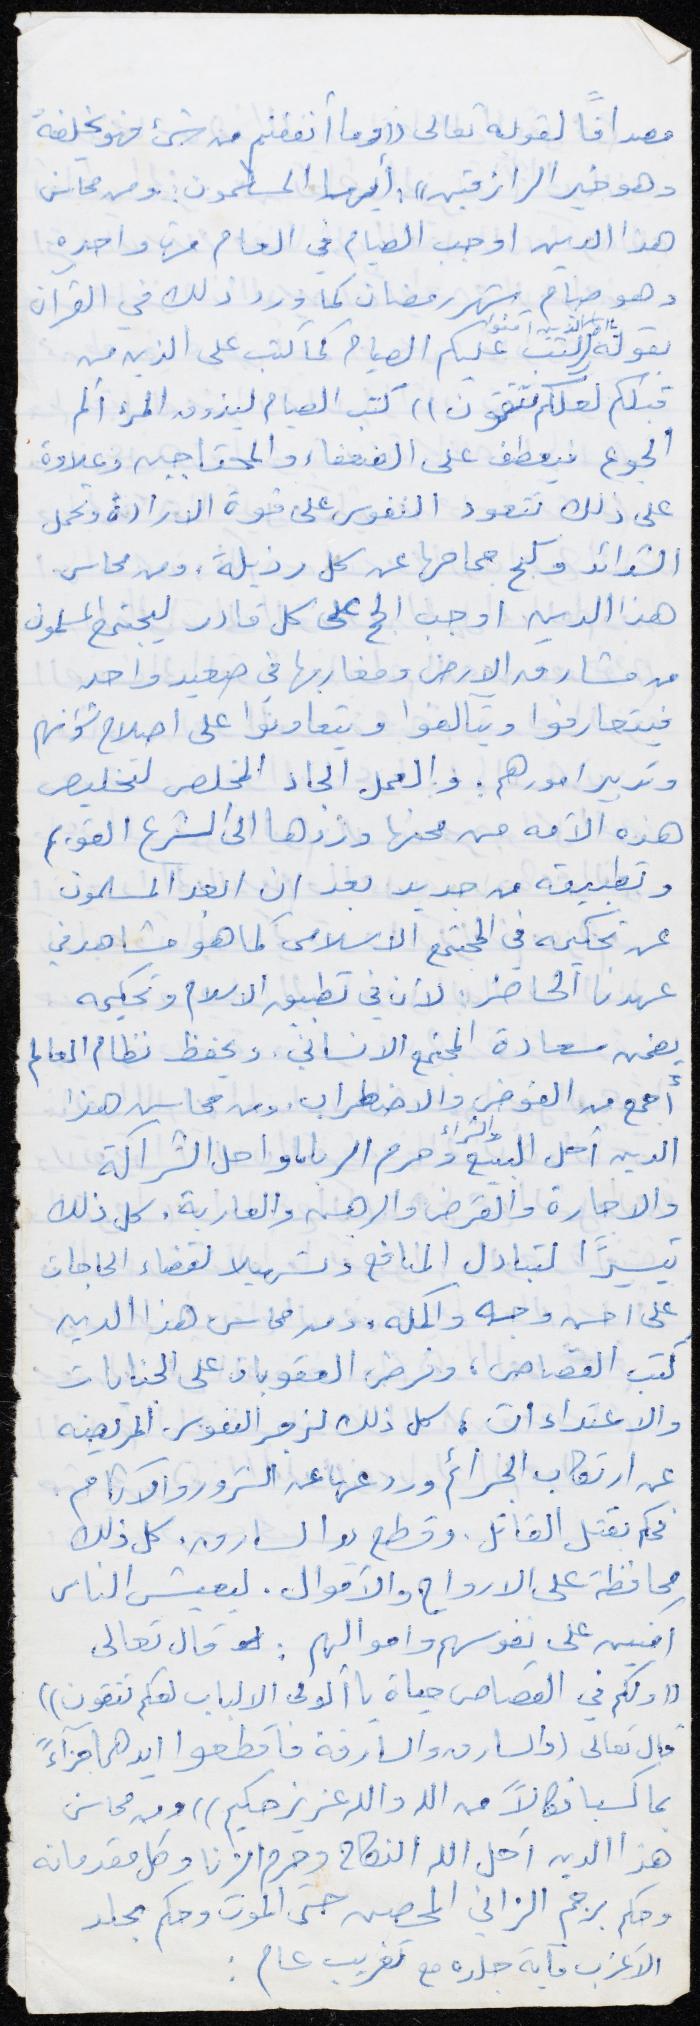 مصداقًا لقوله تعالى ((وما أنفقتم من شيء فهو يخلفه
وهو خير الرازقين)). أيها المسلمون: ومن محاسن
هذا الدين اوجب الصيام في العام مرة واحدة
وهو صيام شهر رمضان كما ورد ذلك في القرآن
يا أيها الذين آمنوا
بقوله ((كتب عليكم الصيام كما كتب على الذين من
قبلكم لعلكم تتقون)) كتب الصيام ليذوق المرء ألم
الجوع فيعطف على الضعفاء والمحتاجين وعلاوة
على ذلك تتعود النفوس على قوة الارادة وتحمل
الشدائد وكبح جماحها عن كل رذيلة. ومن محاسن
هذا الدين اوجب الحج على كل قادر ليجتمع المسلمون
من مشارق الارض ومغاربها في صعيد واحد
فيتعارفوا ويتآلفوا ويتعاونوا على اصلاح شؤنهم
وتدبير امورهم. والعمل الجاد المخلص لتخليص
هذه الأمه من محنها وردها الى الشرع القويم
وتطبيقه من جديد بعد ان ابعد المسلمون
عن تحكيمه في المجتمع الاسلامي كما هو مشاهد في
عهدنا الحاضر. لأن في تطبيق الاسلام وتحكيمه
يضمن سعادة المجتمع الانساني. ويحفظ نظام العالم
أجمع من الفوضى والاضطراب. ومن محاسن هذا
والشراء
الدين أحل البيع وحرم الربا واحل الشراكة
والاجارة والقرض والرهن والعارية. كل ذلك
تيسيرًا لتبادل المنافع وتسهيلا لقضاء الحاجات
على احسن وجه واكمله. ومن محاسن هذا الدين
كتب القصاص، وفرض العقوبات على الجنايات
والاعتداءات، كل ذلك لزجر النفوس المريضه
عن ارتكاب الجرائم وردعها عن الشرور والآثام.
فحكم بقتل القاتل. وقطع يد السارق. كل ذلك
محافظة على الارواح والأموال. ليعيش الناس
آمنين على نفوسهم واموالهم: قال تعالى
((ولكم في القصاص حياة يا ألولى الالباب لعلكم تتقون))
قال تعالى ((والسارق والسارقة فاقطعوا ايديهما جزآءً
بما كسبا نكالاً من الله والله عزيز حكيم)) ومن محاسن
هذا الدين أحل الله النكاح وحرم الزنا وكل مقدماته
وحكم برجم الزاني المحصن حتى الموت وحكم بجلد
الأعزب مأية جلده مع تغريب عام: